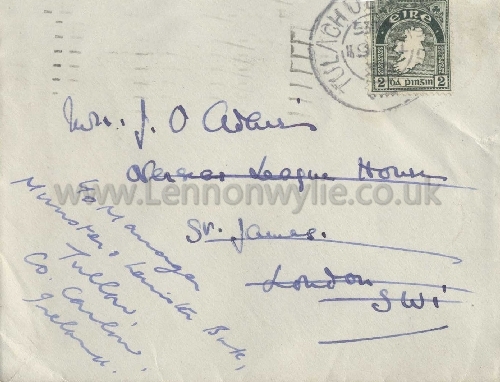 ÉIRE
2 DÁ PINGIN 2
TULACH
Mrs. J. O Adkins
Overseas League House
St. James.
London
SW1
c/o Manager
Munster & Leinster Bank,
Tullow,
Co. Carlow,
Ireland.
www.Lennonwylie.co.uk